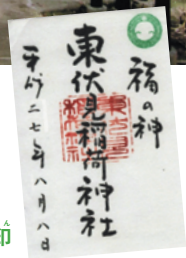 福の神
東伏見稲荷神社
平成二七年八月八日
ん
印